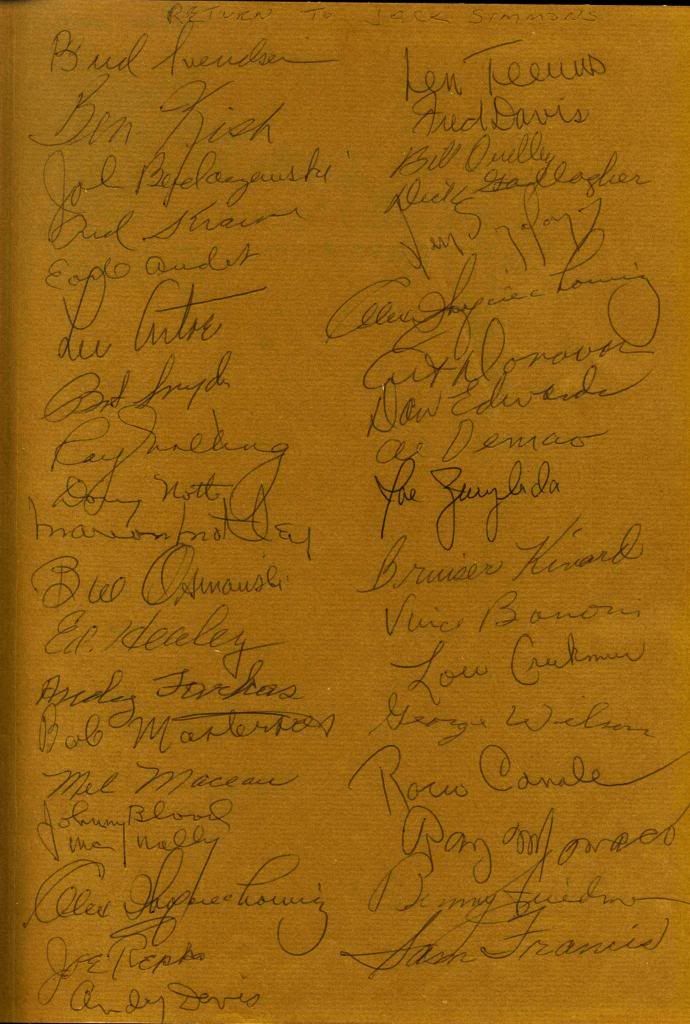 RETURN TO JACK SIMMONS
Bud Svendsen
Ben Kish
Bud
Lee Artoe
Bob Snyder
Ray
Doug Nott
Marion Motley
Bill Osmanski
Ed. Healey
Andy Farkas
Bob Masterson
Mel Maceau
Johnny Blood
McNally
Alex Wojciechowicz
Joe Repko
Andy Davis
Len Teeuws
Fred Davis
Bill
Dick Gallagher
Alex Wojciechowicz
Art Donovan
Dan Edwards
Al Demao
Joe
Bruiser Kinard
Vince Banonis
Lou Creekmur
George Wilson
Rocco Canale
Ray Monaco
Benny Friedman
Sam Francis